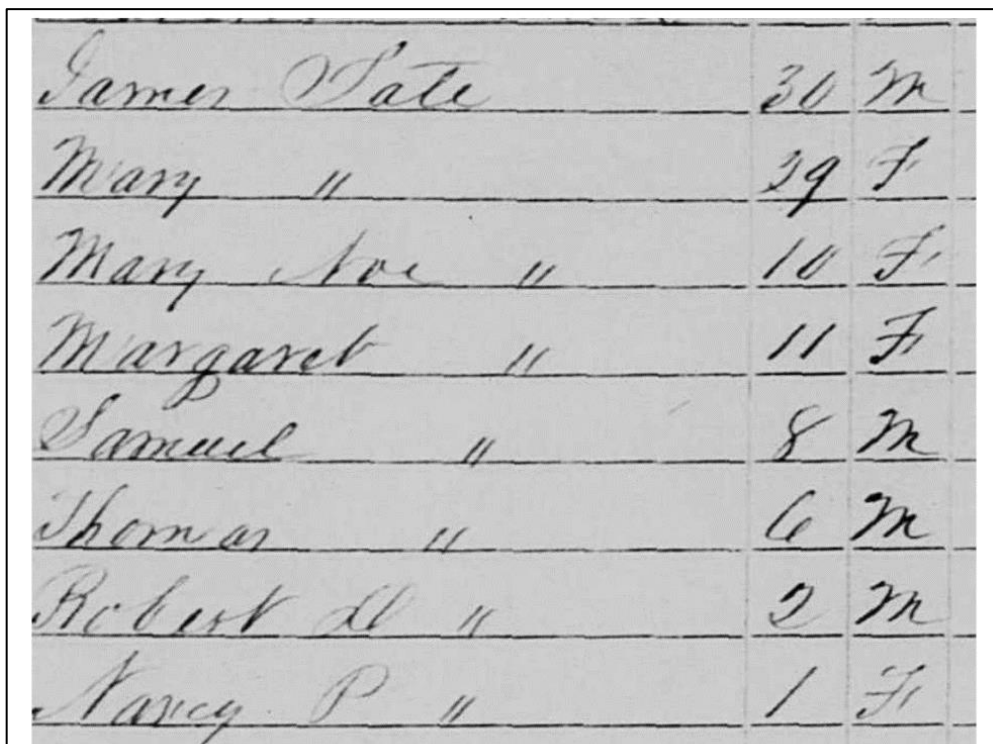 James Tate 30 M
Mary " 29 F
Mary Noe " 10 F
Margaret " 11 F
Samuel " 8 M
Thomas " 6 M
Robert D " 2 M
Nancy P " 1 F